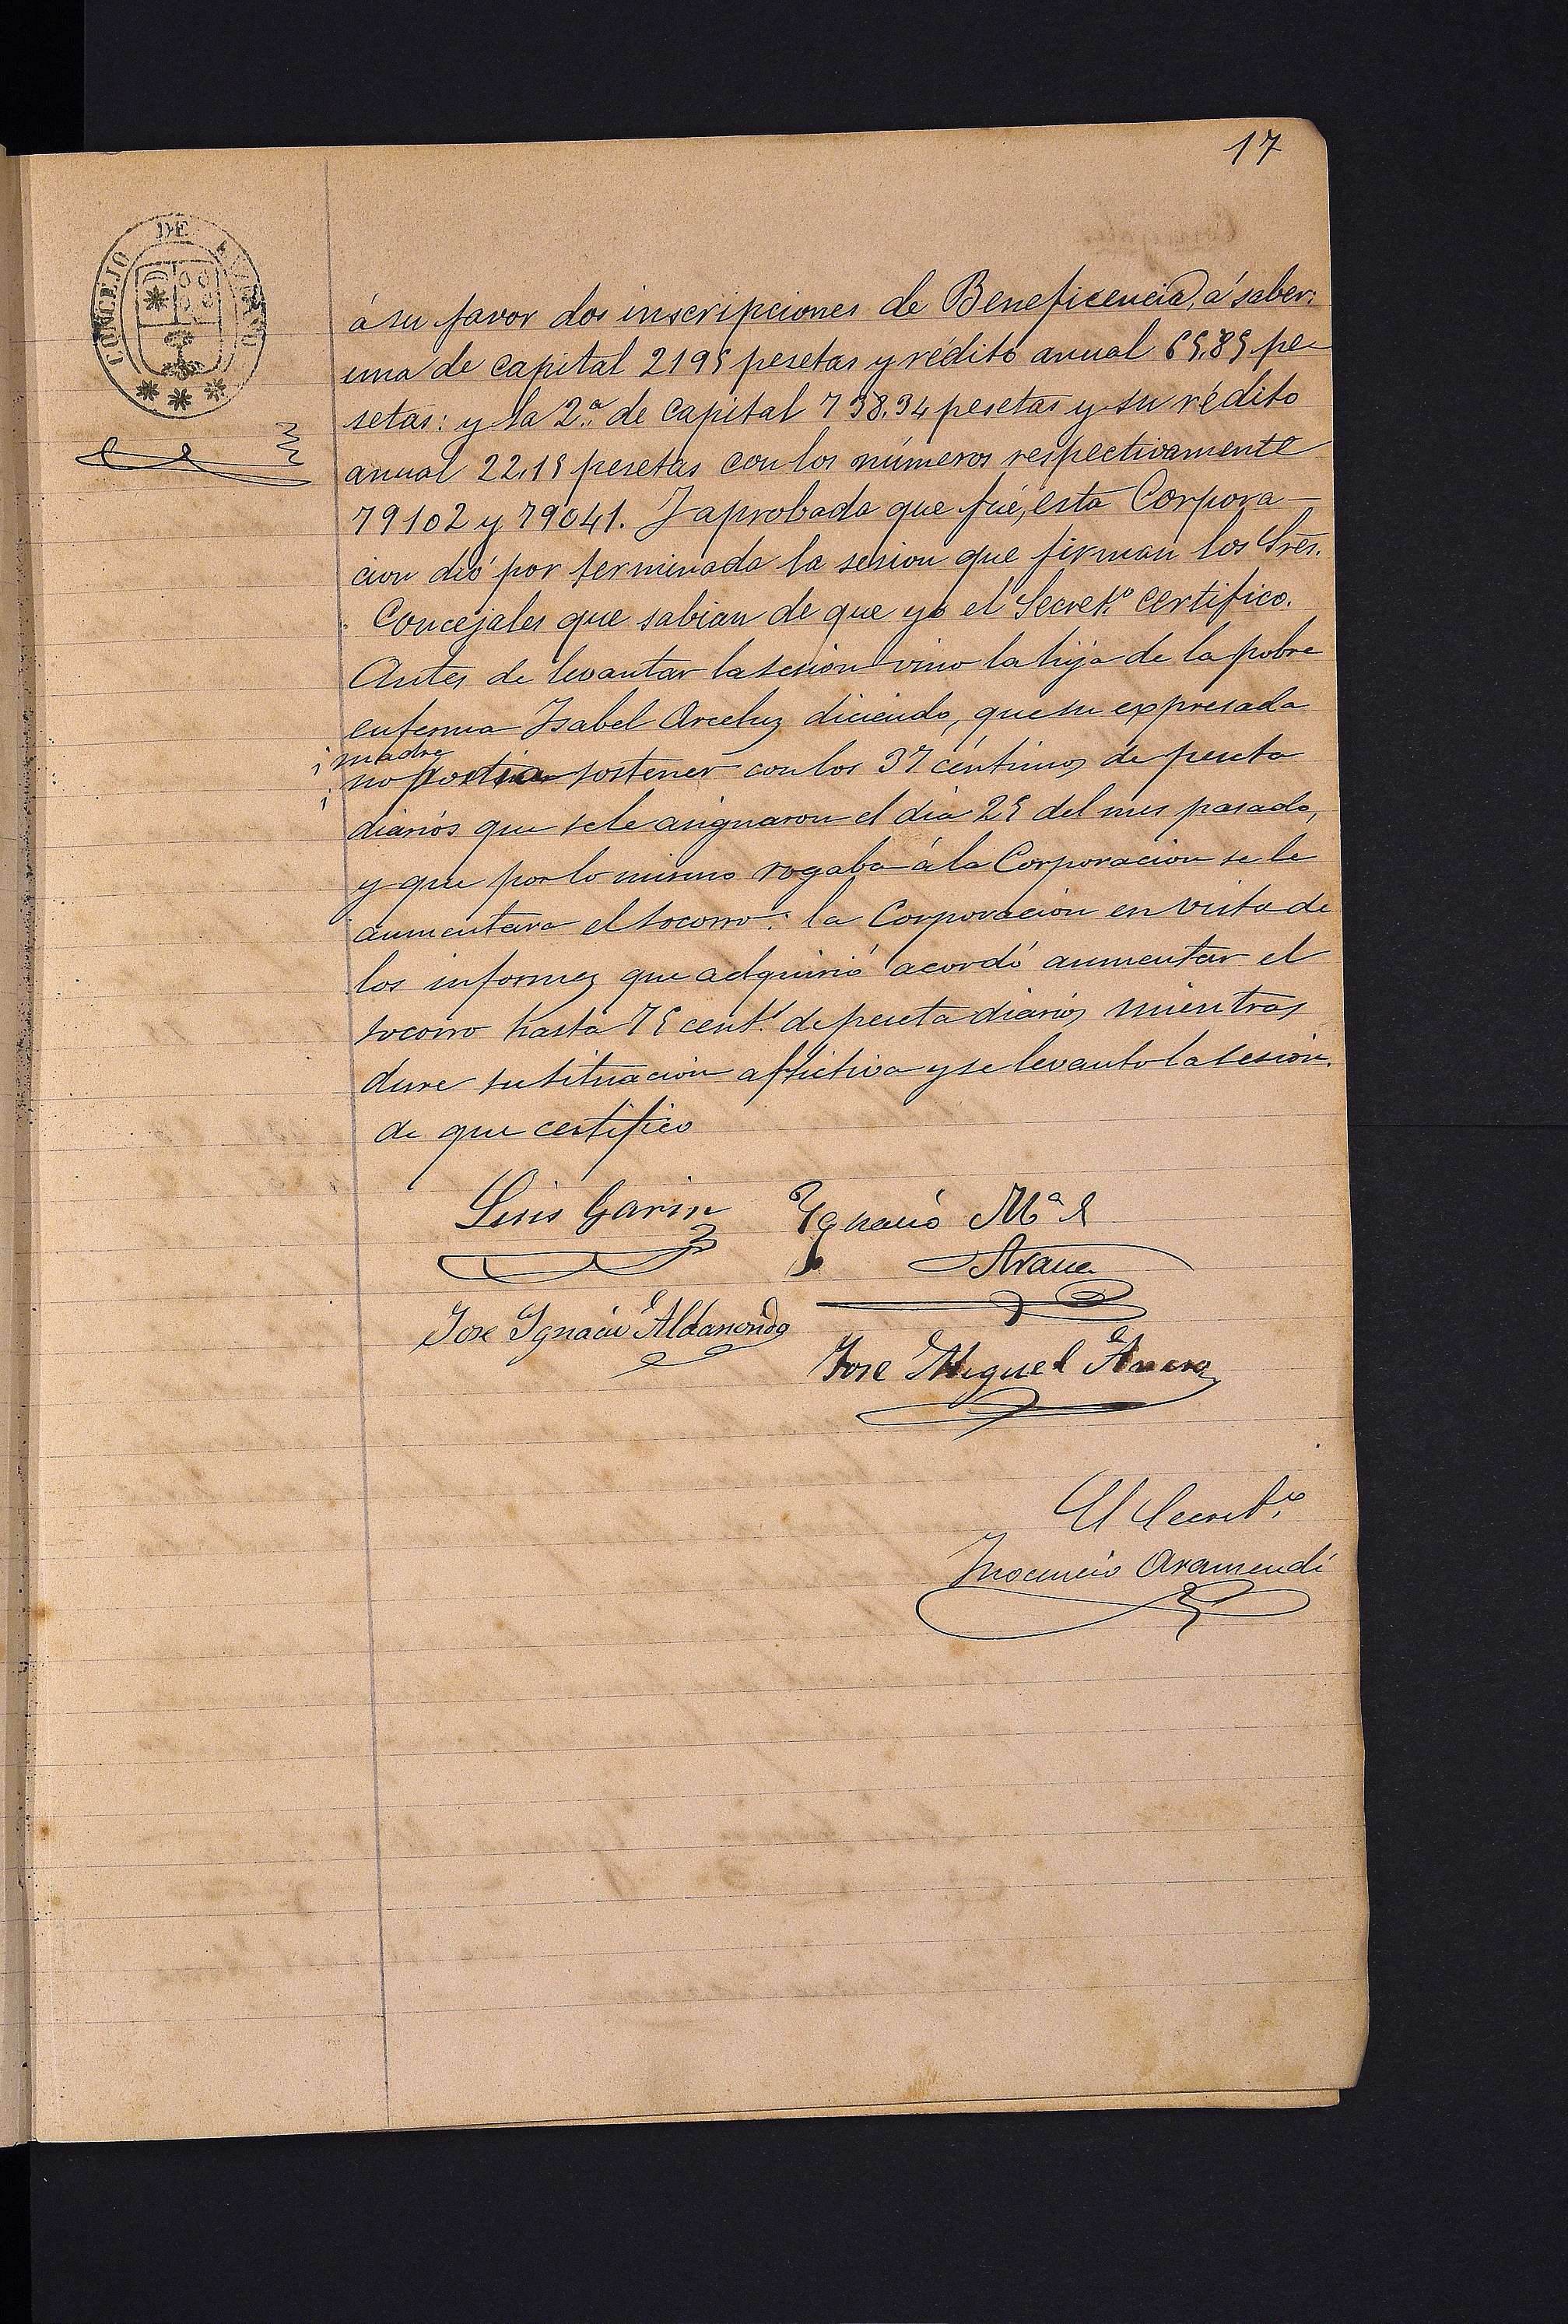 17
CONCEJO DE
á su favor dos inscripciones de Beneficencia, á saber:
una de capital 2195 pesetas y rédito anual 65,85 pe-
setas: y la 2.ª de capital 738,34 pesetas y su rédito
anual 22,15 pesetas con los números respectivamente
79102 y 79041. Y aprobada que fué, esta Corpora-
cion dió por terminada la sesion que firman los Sres.
Concejales que sabian de que yo el Secret.º certifico.
Antes de levantar la sesion vino la hija de la pobre
enferma Isabel Arceluz diciendo, que su expresada
madre
no podia sostener con los 37 céntimos de peseta
diarios que se le asignaron el dia 25 del mes pasado,
y que por lo mismo rogaba á la Corporacion se le
aumentara el socorro: la Corporacion en vista de
los informes que adquirió acordó aumentar el
socorro hasta 75 cent.s de peseta diarios mientras
dure su situacion aflictiva y se levanto la sesion.
de que certifico
Luis Garin Ygnacio Mª
Arana
Jose Ygnacio Aldanondo
Jose Miguel
El Secret.º
Inocencio Aramendi